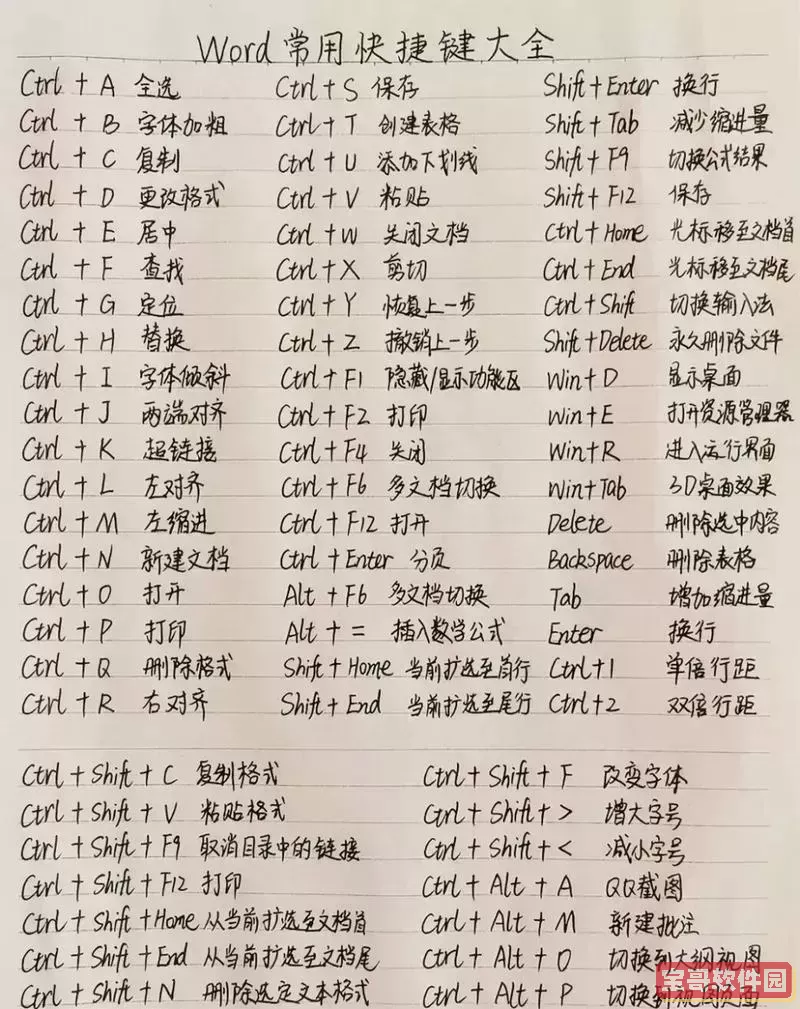 Word常用快捷键大全
Ctrl + A 全选 Ctrl + S 保存 Shift + Enter 换行
Ctrl + B 字体加粗 Ctrl + T 创建表格 Shift + Tab 减少缩进量
Ctrl + C 复制 Ctrl + U 添加下划线 Shift + F9 切换公式结果
Ctrl + D 更改格式 Ctrl + V 粘贴 Shift + F12 保存
Ctrl + E 居中 Ctrl + W 关闭文档 Ctrl + Home 光标移至文档首
Ctrl + F 查找 Ctrl + X 剪切 Ctrl + End 光标移至文档尾
Ctrl + G 定位 Ctrl + Y 恢复上一步 Ctrl + Shift 切换输入法
Ctrl + H 替换 Ctrl + Z 撤销上一步 Shift + Delete 永久删除文件
Ctrl + I 字体倾斜 Ctrl + F1 隐藏/显示功能区 Win + D 显示桌面
Ctrl + J 两端对齐 Ctrl + F2 打印 Win + E 打开资源管理器
Ctrl + K 超链接 Ctrl + F4 关闭 Win + R 进入运行界面
Ctrl + L 左对齐 Ctrl + F6 多文档切换 Win + Tab 3D桌面效果
Ctrl + M 左缩进 Ctrl + F12 打开 Delete 删除选中内容
Ctrl + N 新建文档 Ctrl + Enter 分页 Backspace 删除表格
Ctrl + O 打开 Alt + F6 多文档切换 Tab 增加缩进量
Ctrl + P 打印 Alt + = 插入数学公式 Enter 换行
Ctrl + Q 删除格式 Shift + Home 当前扩选至首行 Ctrl + 1 单倍行距
Ctrl + R 右对齐 Shift + End 当前扩选至尾行 Ctrl + 2 双倍行距
Ctrl + Shift + C 复制格式 Ctrl + Shift + F 改变字体
Ctrl + Shift + V 粘贴格式 Ctrl + Shift + > 增大字号
Ctrl + Shift + F9 取消目录中的链接 Ctrl + Shift + < 减小字号
Ctrl + Shift + F12 打印 Ctrl + Alt + A QQ截图
Ctrl + Shift + Home 从当前扩选至文档首 Ctrl + Alt + M 新建批注
Ctrl + Shift + End 从当前扩选至文档尾 Ctrl + Alt + O 切换到大纲视图
Ctrl + Shift + N 删除选定文本格式 Ctrl + Alt + P 切换到视图页面
宝哥软件园